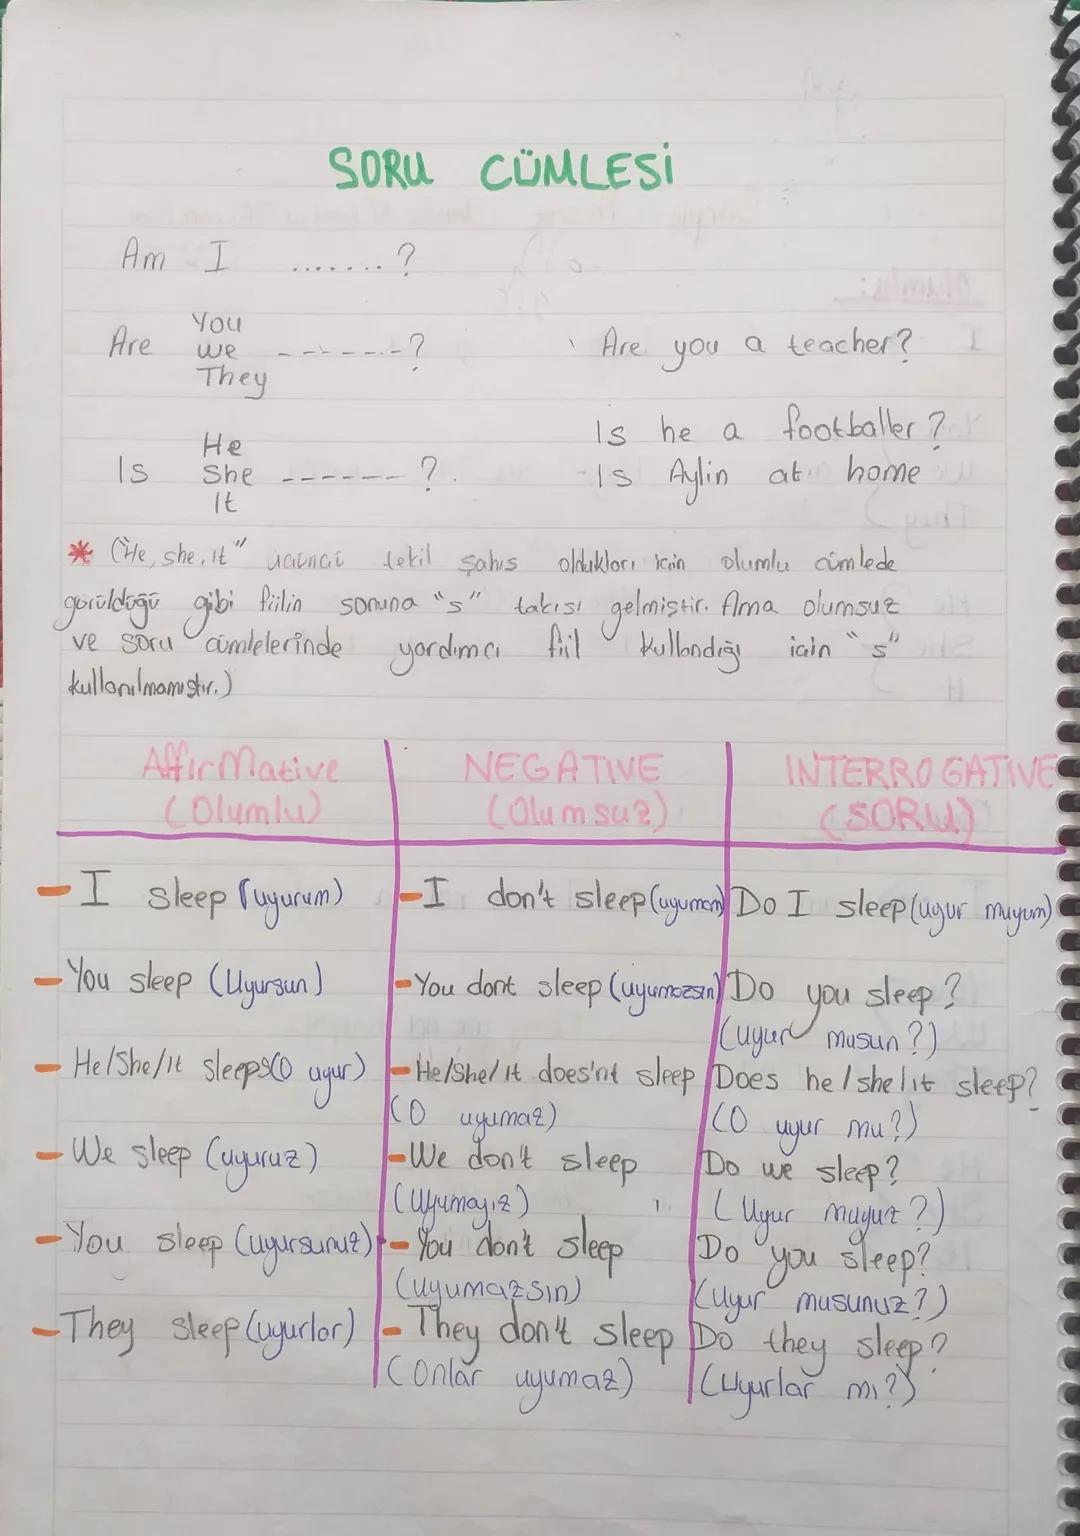 SORU CÜMLESİ
Am I .......?
You
Are we ------? Are you a teacher?
They
He
Is She ------?
It
Is he a footballer?
Is Aylin at home
* ("He, she, It" üçüncü tekil şahıs oldukları için olumlu cümlede
görüldüğü gibi fiilin sonuna "s" takısı gelmiştir. Ama olumsuz
ve soru cümlelerinde yardımcı fiil kullandığı için "s"
kullanılmamıştır.)
Affirmative
(Olumlu)
- I sleep (uyurum)
- You sleep (Uyursun)
- He/She/It sleeps (O uyur)
- We sleep (uyuruz)
- You sleep (uyursunuz)
- They sleep (uyurlar)
NEGATIVE
(Olumsuz)
- I don't sleep (uyumam)
- You dont sleep (uyumazsın)
- He/She/It does'nt sleep
(O uyumaz)
- We don't sleep
(Uyumayız)
- You don't sleep
(uyumazsın)
- They don't sleep
(Onlar uyumaz)
INTERROGATIVE
(SORU)
Do I sleep (uyur muyum)
Do you sleep?
(uyur musun?)
Does he/she/it sleep?
(O uyur mu?)
Do we sleep?
(Uyur muyuz?)
Do you sleep?
(Uyur musunuz?)
Do they sleep?
(Uyurlar mı?)